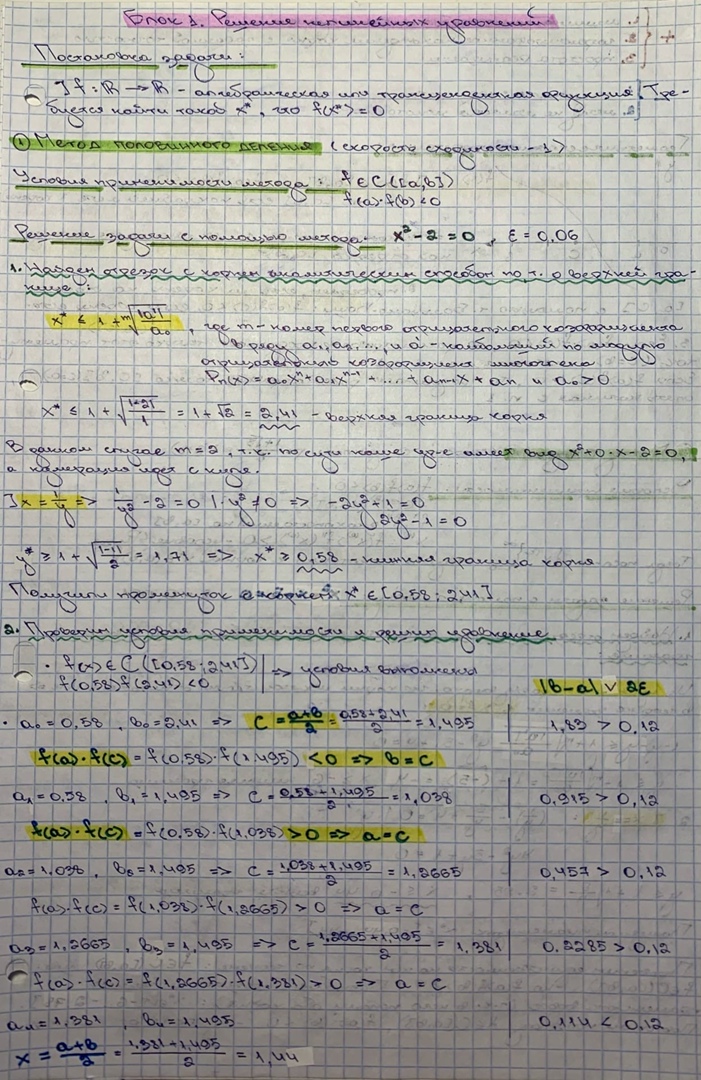 Блок 1. Решение нелинейных уравнений
Постановка задачи:
] f: ℝ → ℝ - алгебраическая или трансцендентная функция. Тре-
буется найти такой x*, что f(x*) = 0
① Метод половинного деления (скорость сходимости - 1)
Условия применимости метода: f ∈ C([a,b])
f(a)·f(b) < 0
Решение задачи с помощью метода: x² - 2 = 0, ε = 0,06
1. Найдем отрезок с корнем аналитическим способом по т. о верхней гра-
нице:
x* ≤ 1 + ᵐ√(|a'|/a₀), где m - номер первого отрицательного коэффициента
в ряду a₁, a₂, ..., и a' - наибольший по модулю
отрицательный коэффициент многочлена
Pₙ(x) = a₀xⁿ + a₁xⁿ⁻¹ + ... + aₙ₋₁x + aₙ и a₀ > 0
x* ≤ 1 + √(|-2|/1) = 1 + √2 = 2,41 - верхняя граница корня
В данном случае m = 2, т.к. по сути наше ур-е имеет вид x² + 0·x - 2 = 0,
а нумерация идет с нуля.
] x = 1/y => 1/y² - 2 = 0 |·y² ≠ 0 => -2y² + 1 = 0
2y² - 1 = 0
y* ≥ 1 + √(|-1|/2) = 1,71 => x* ≥ 0,58 - нижняя граница корня
Получили промежуток x* ∈ [0,58; 2,41]
2. Проверим условия применимости и решим уравнение
· f(x) ∈ C([0,58; 2,41]) | => условия выполнены
f(0,58)f(2,41) < 0
|b-a| ∨ 2ε
· a₀ = 0,58, b₀ = 2,41 => c = (a+b)/2 = (0,58+2,41)/2 = 1,495 | 1,83 > 0,12
f(a)·f(c) = f(0,58)·f(1,495) < 0 => b = c
a₁ = 0,58, b₁ = 1,495 => c = (0,58+1,495)/2 = 1,038 | 0,915 > 0,12
f(a)·f(c) = f(0,58)·f(1,038) > 0 => a = c
a₂ = 1,038, b₂ = 1,495 => c = (1,038+1,495)/2 = 1,2665 | 0,457 > 0,12
f(a)·f(c) = f(1,038)·f(1,2665) > 0 => a = c
a₃ = 1,2665, b₃ = 1,495 => c = (1,2665+1,495)/2 = 1,381 | 0,2285 > 0,12
f(a)·f(c) = f(1,2665)·f(1,381) > 0 => a = c
a₄ = 1,381, b₄ = 1,495 | 0,114 < 0,12
x = (a+b)/2 = (1,381+1,495)/2 = 1,44